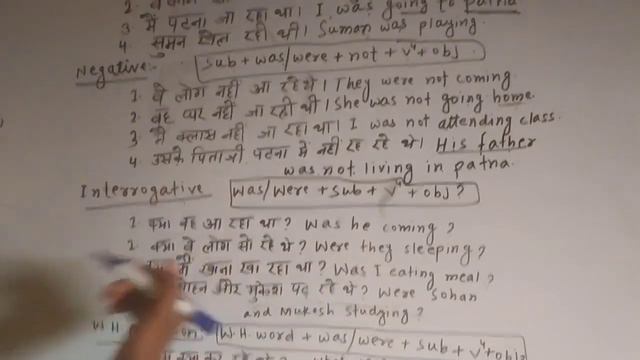 3. मैं पटना जा रहा था। I was going to patna
4. सुमन खेल रही थी। Suman was playing.
Negative:- Sub + was/were + not + V⁴ + obj.
1. वे लोग नहीं आ रहे थे। They were not coming.
2. वह घर नहीं जा रही थी। She was not going home.
3. मैं क्लास नहीं जा रहा था। I was not attending class.
4. उसके पिताजी पटना में नहीं रह रहे थे। His father
was not living in patna.
Interrogative Was/Were + Sub + V⁴ + obj ?
1. क्या वह आ रहा था ? Was he coming ?
2. क्या वे लोग सो रहे थे ? Were they sleeping ?
मैं खाना खा रहा था ? Was I eating meal ?
सोहन और मुकेश पढ़ रहे थे ? Were Sohan
and Mukesh studying ?
W.H. W.H. word + was/were + sub + V⁴ + obj ?